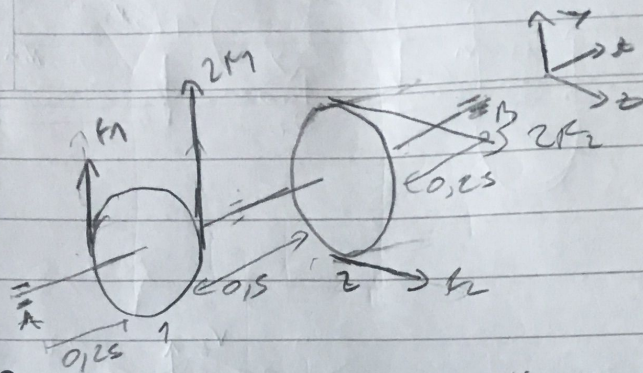 y
x
z
2F1
F1
B
2F2
0,25
0,5
2
F2
A
0,25
1